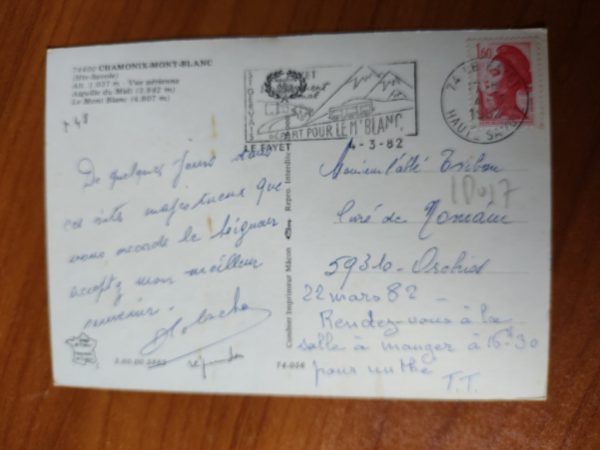 74400 CHAMONIX-MONT-BLANC
(Hte-Savoie)
Alt. 1.037 m - Vue aérienne
Aiguille du Midi (3.842 m)
Le Mont Blanc (4.807 m)
De quelques jours dans
ces sites majestueux que
vous accorde le Seigneur
acceptez mon meilleur
souvenir.
répondu
74-056
Combier Imprimeur Mâcon
Repro. Interdite
ST GERVAIS
LE FAYET
DÉPART POUR LE Mt BLANC
4-3-82
1,60
74
HAUTE SAVOIE
Monsieur l'abbé
1D017
Curé de
59310 - Orchies
22 mars 82 -
Rendez-vous à la
salle à manger à 16h30
pour un thé
T.T.